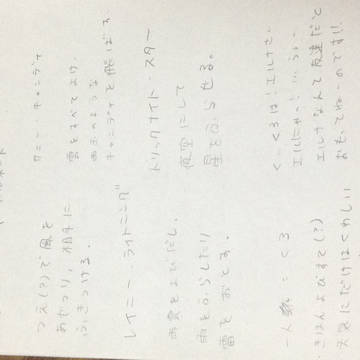 つえ(?)で風を
あやつり、相手に
ふきつける。
レイニー・ライトニング
雨雲をよびだし、
雨をふらしたり
雷をおとす。
一人称=くろ
きほんよびすて(?)
天気にだけはくわしい
サニー・キャンディ
雲をすべてよけ、
のような
キャンディを飛ばす
トリックナイト・スター
夜空にして
星をふらせる。
く、くろは!エルナ
エルナ
エルナなんて友達だと
おもってねーのです!!